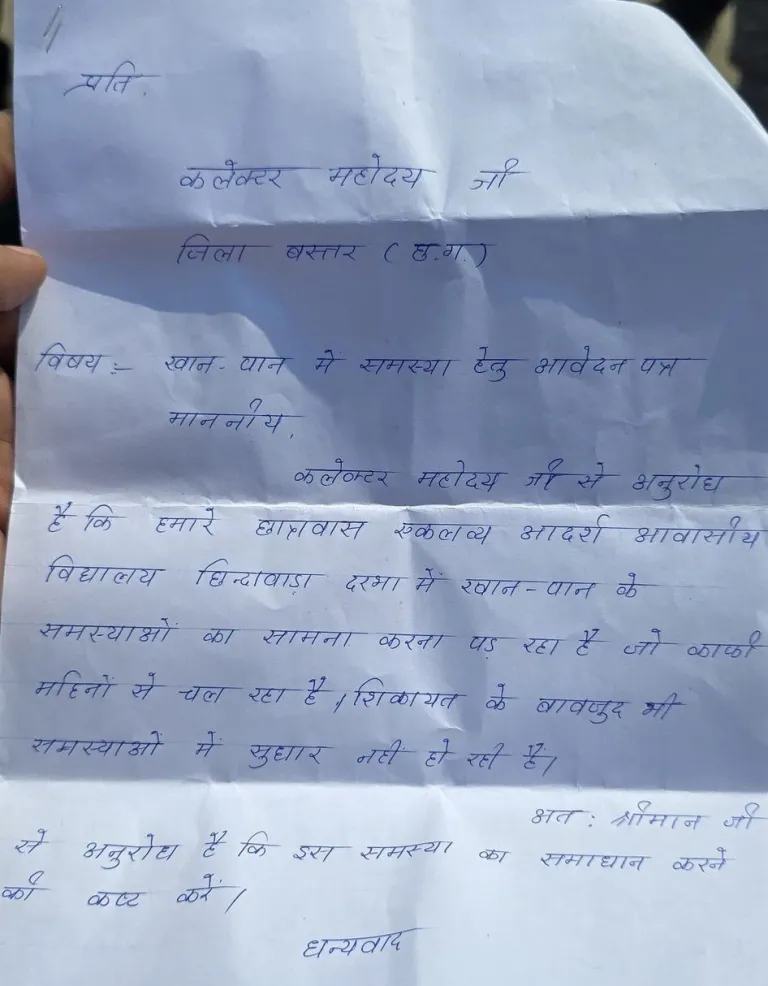 प्रति.
कलेक्टर महोदय जी
जिला बस्तर (छ.ग.)
विषय :- खान-पान में समस्या हेतु आवेदन पत्र
माननीय,
कलेक्टर महोदय जी से अनुरोध
है कि हमारे छात्रावास एकलव्य आदर्श आवासीय
विद्यालय छिन्दावाड़ा दरभा में खान-पान के
समस्याओं का सामना करना पड़ रहा है जो काफी
महिनों से चल रहा है, शिकायत के बावजुद भी
समस्याओं में सुधार नहीं हो रही है।
अत: श्रीमान जी
से अनुरोध है कि इस समस्या का समाधान करने
की कष्ट करें।
धन्यवाद